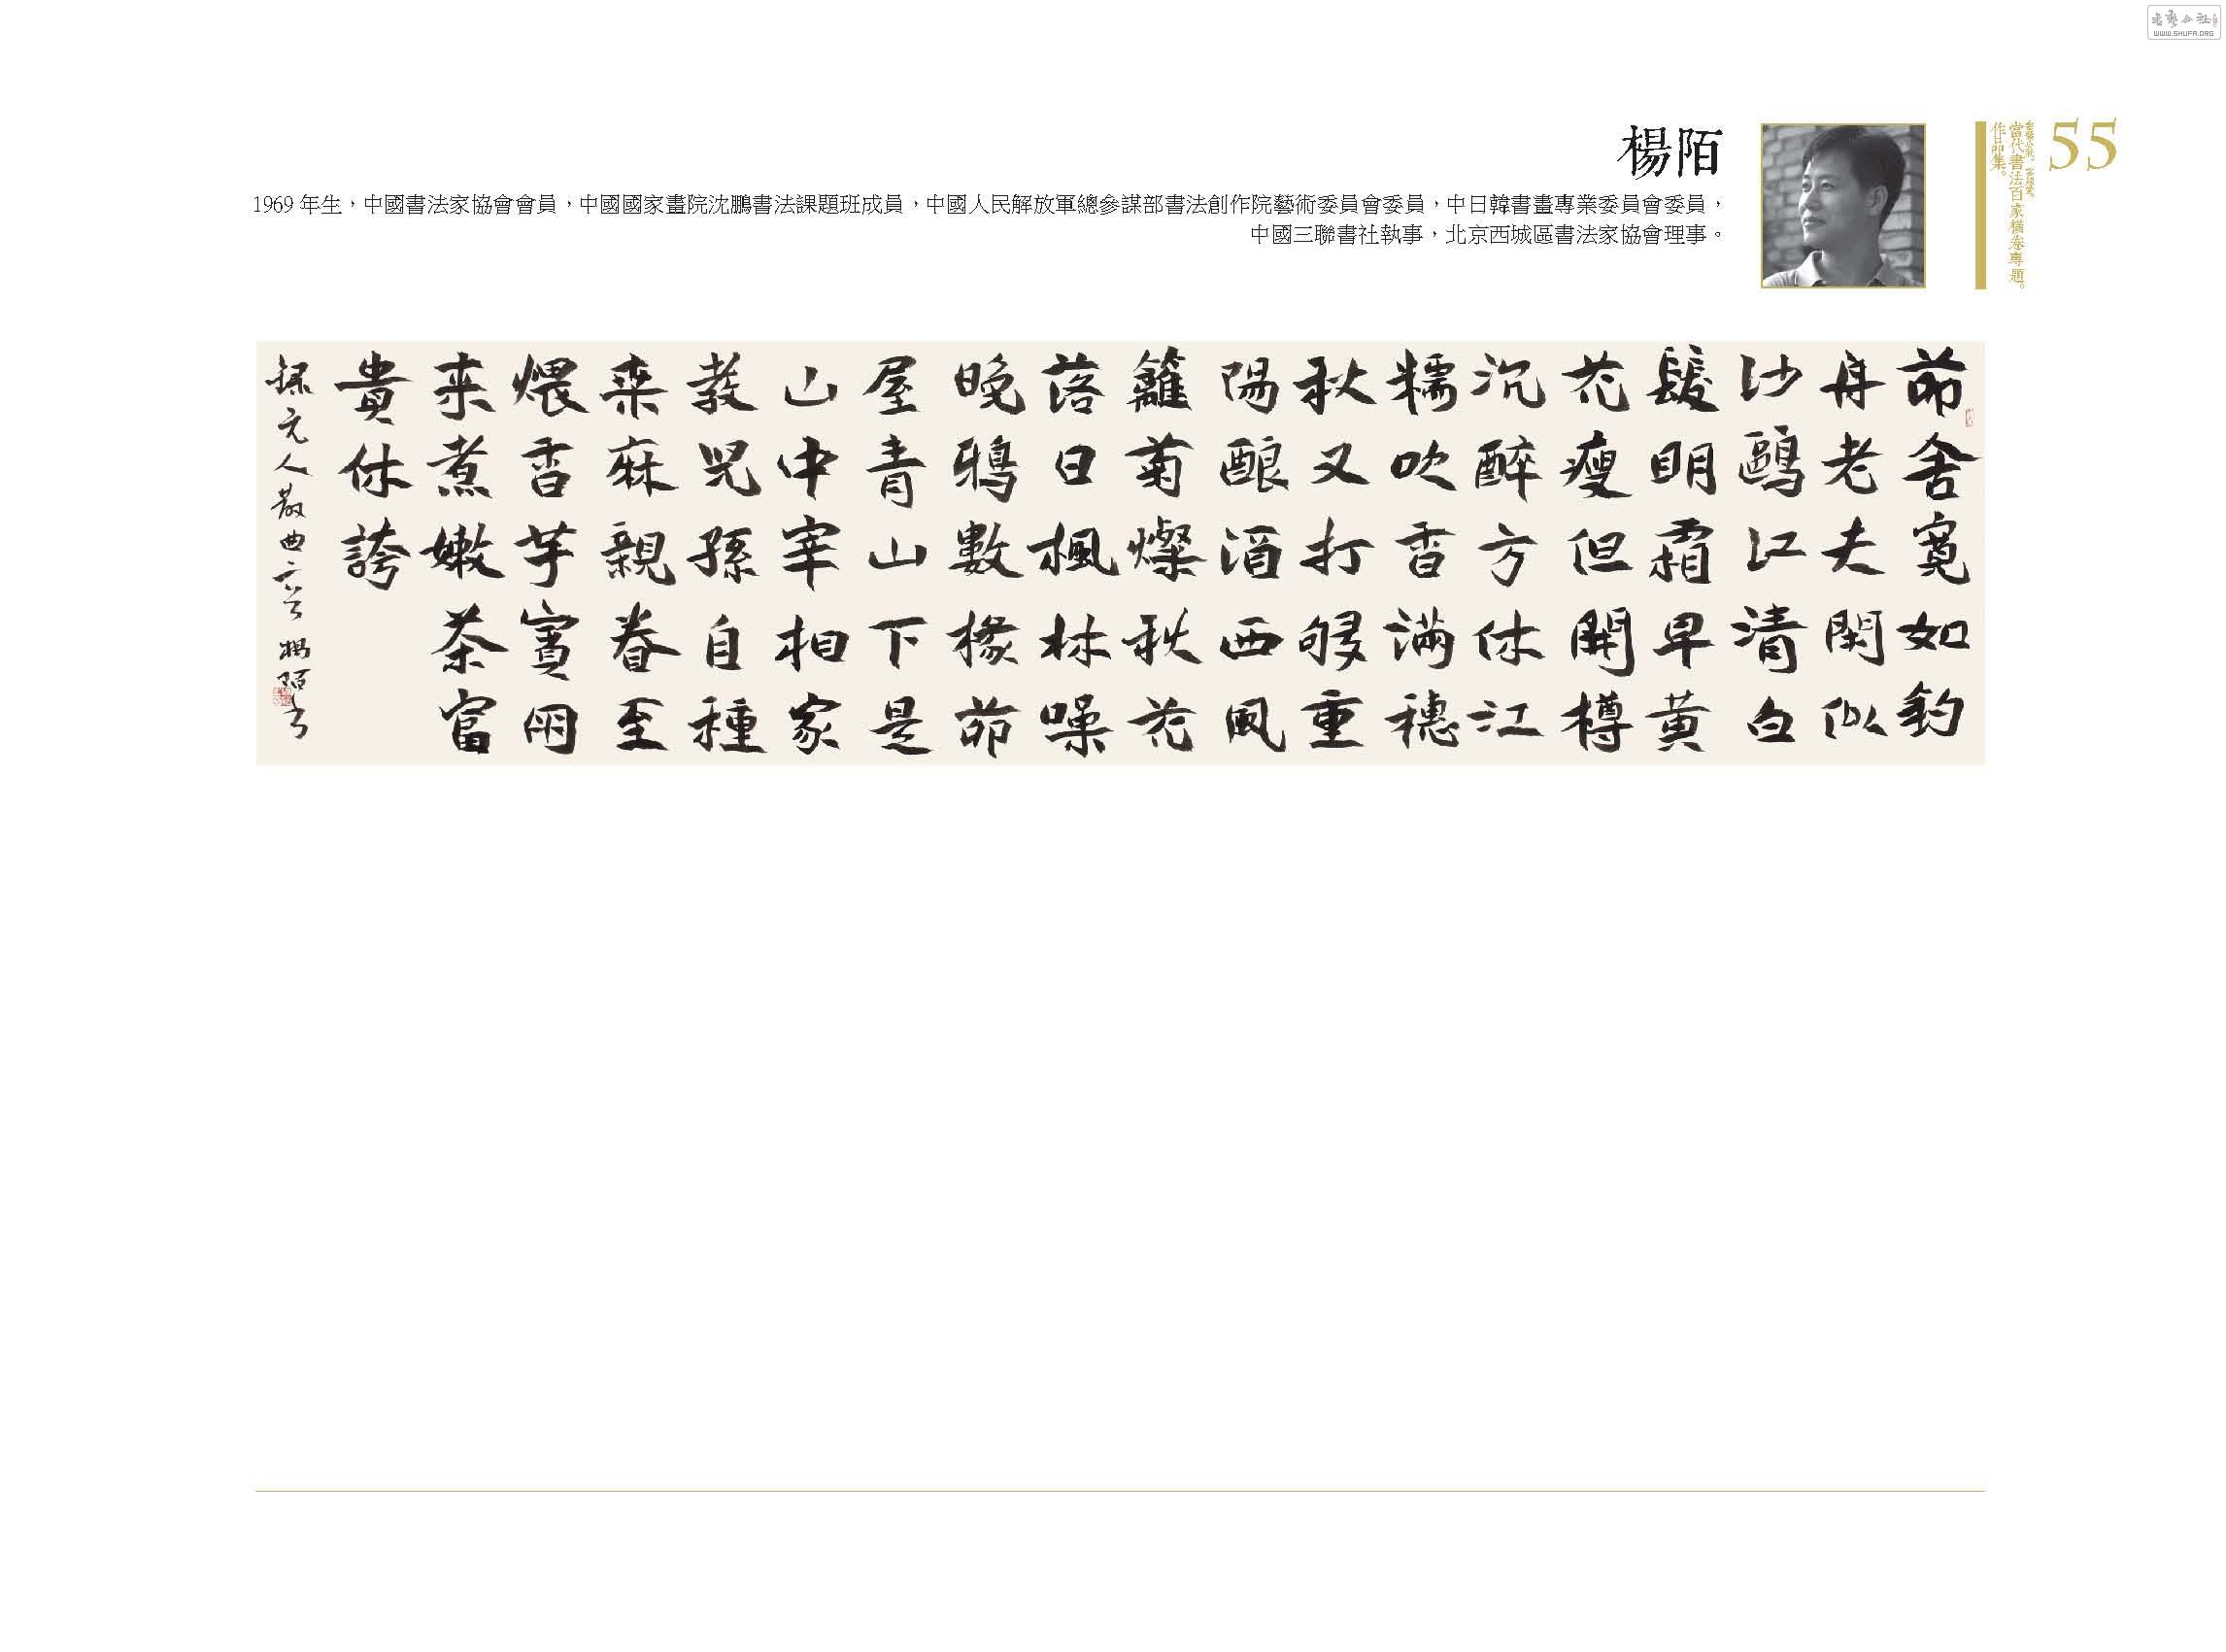 書法公社
WWW.SHUFA.ORG
55
當代書法百家橫卷專題。
作品集。
楊陌
1969 年生，中國書法家協會會員，中國國家畫院沈鵬書法課題班成員，中國人民解放軍總參謀部書法創作院藝術委員會委員，中日韓書畫專業委員會委員，
中國三聯書社執事，北京西城區書法家協會理事。
茆舍寬如釣
舟老夫閑似
沙鷗江清白
髮明霜早黃
花瘦但開樽
沉醉方休江
糯吹香滿穗
秋又打够重
陽酿酒西風
籬菊燦秋花
落日楓林噪
晚鴉數椽茆
屋青山下是
山中宰相家
教兒孫自種
桒麻親眷至
煨香芋賓朋
来煮嫩茶富
貴休誇
錄元人散曲二首 楊陌書